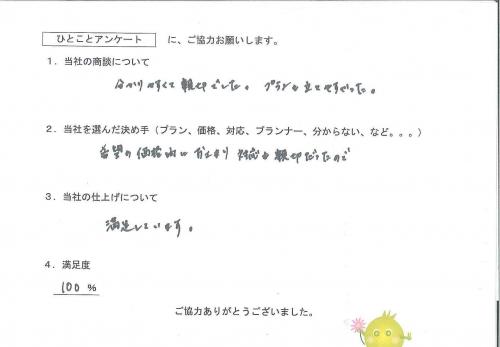 ひとことアンケート に、ご協力お願いします。
1．当社の商談について
分かりやすくて親切でした。プランも立てやすかった。
2．当社を選んだ決め手（プラン、価格、対応、プランナー、分からない、など。。。）
希望の価格内におさまり対応も親切だったので
3．当社の仕上げについて
満足しています。
4．満足度
100 %
ご協力ありがとうございました。